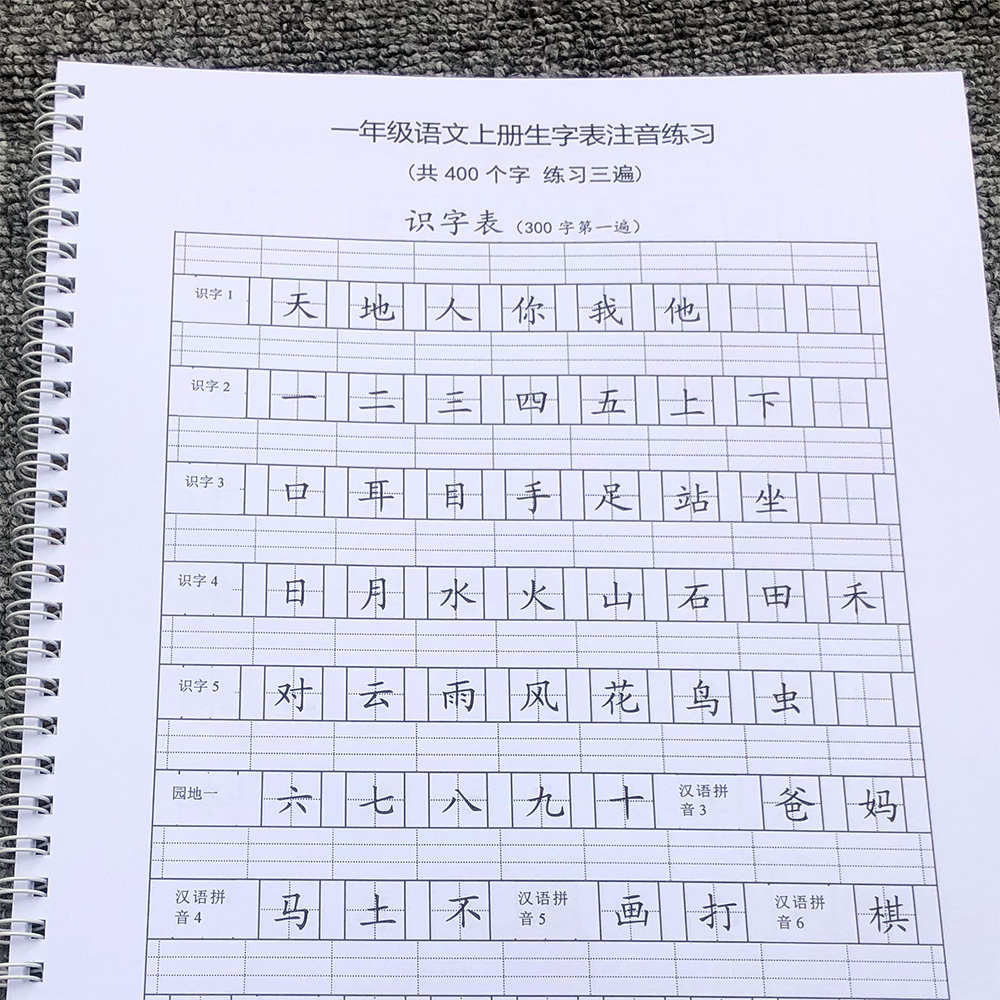 一年级语文上册生字表注音练习
（共 400 个字 练习三遍）
识字表（300 字第一遍）
识字 1 天 地 人 你 我 他
识字 2 一 二 三 四 五 上 下
识字 3 口 耳 目 手 足 站 坐
识字 4 日 月 水 火 山 石 田 禾
识字 5 对 云 雨 风 花 鸟 虫
园地一 六 七 八 九 十 汉语拼音 3 爸 妈
汉语拼音 4 马 土 不 汉语拼音 5 画 打 汉语拼音 6 棋